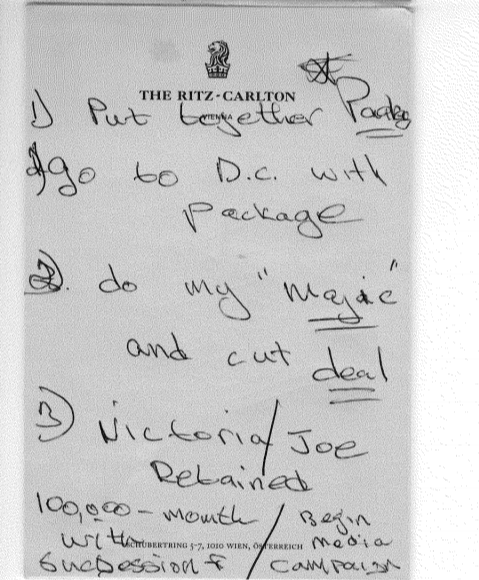 THE RITZ-CARLTON
VIENNA
1) Put together
go to D.C. with
package
2). do my "magic"
and cut deal
3) Victoria/Joe
Retained
100,000 - month / Begin
with media
SCHUBERTRING 5-7, 1010 WIEN, ÖSTERREICH
/ campaign